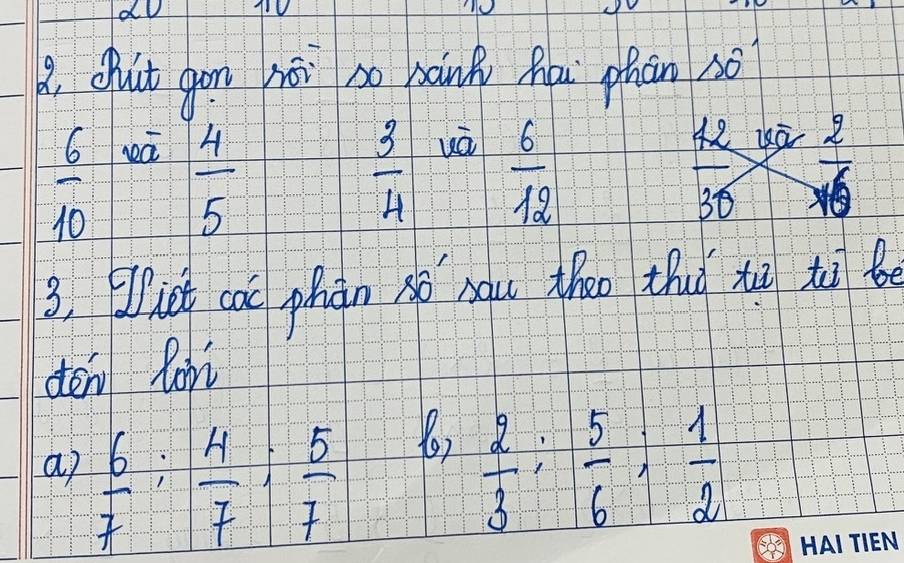 2, Rút gọn rồi so sánh hai phân số
6/10 và 4/5 3/4 và 6/12 12/30 và 2/6
3, Viết các phân số sau theo thứ tự từ bé
đến lớn
a) 6/7 ; 4/7 ; 5/7 b) 2/3 ; 5/6 ; 1/2
HAI TIEN